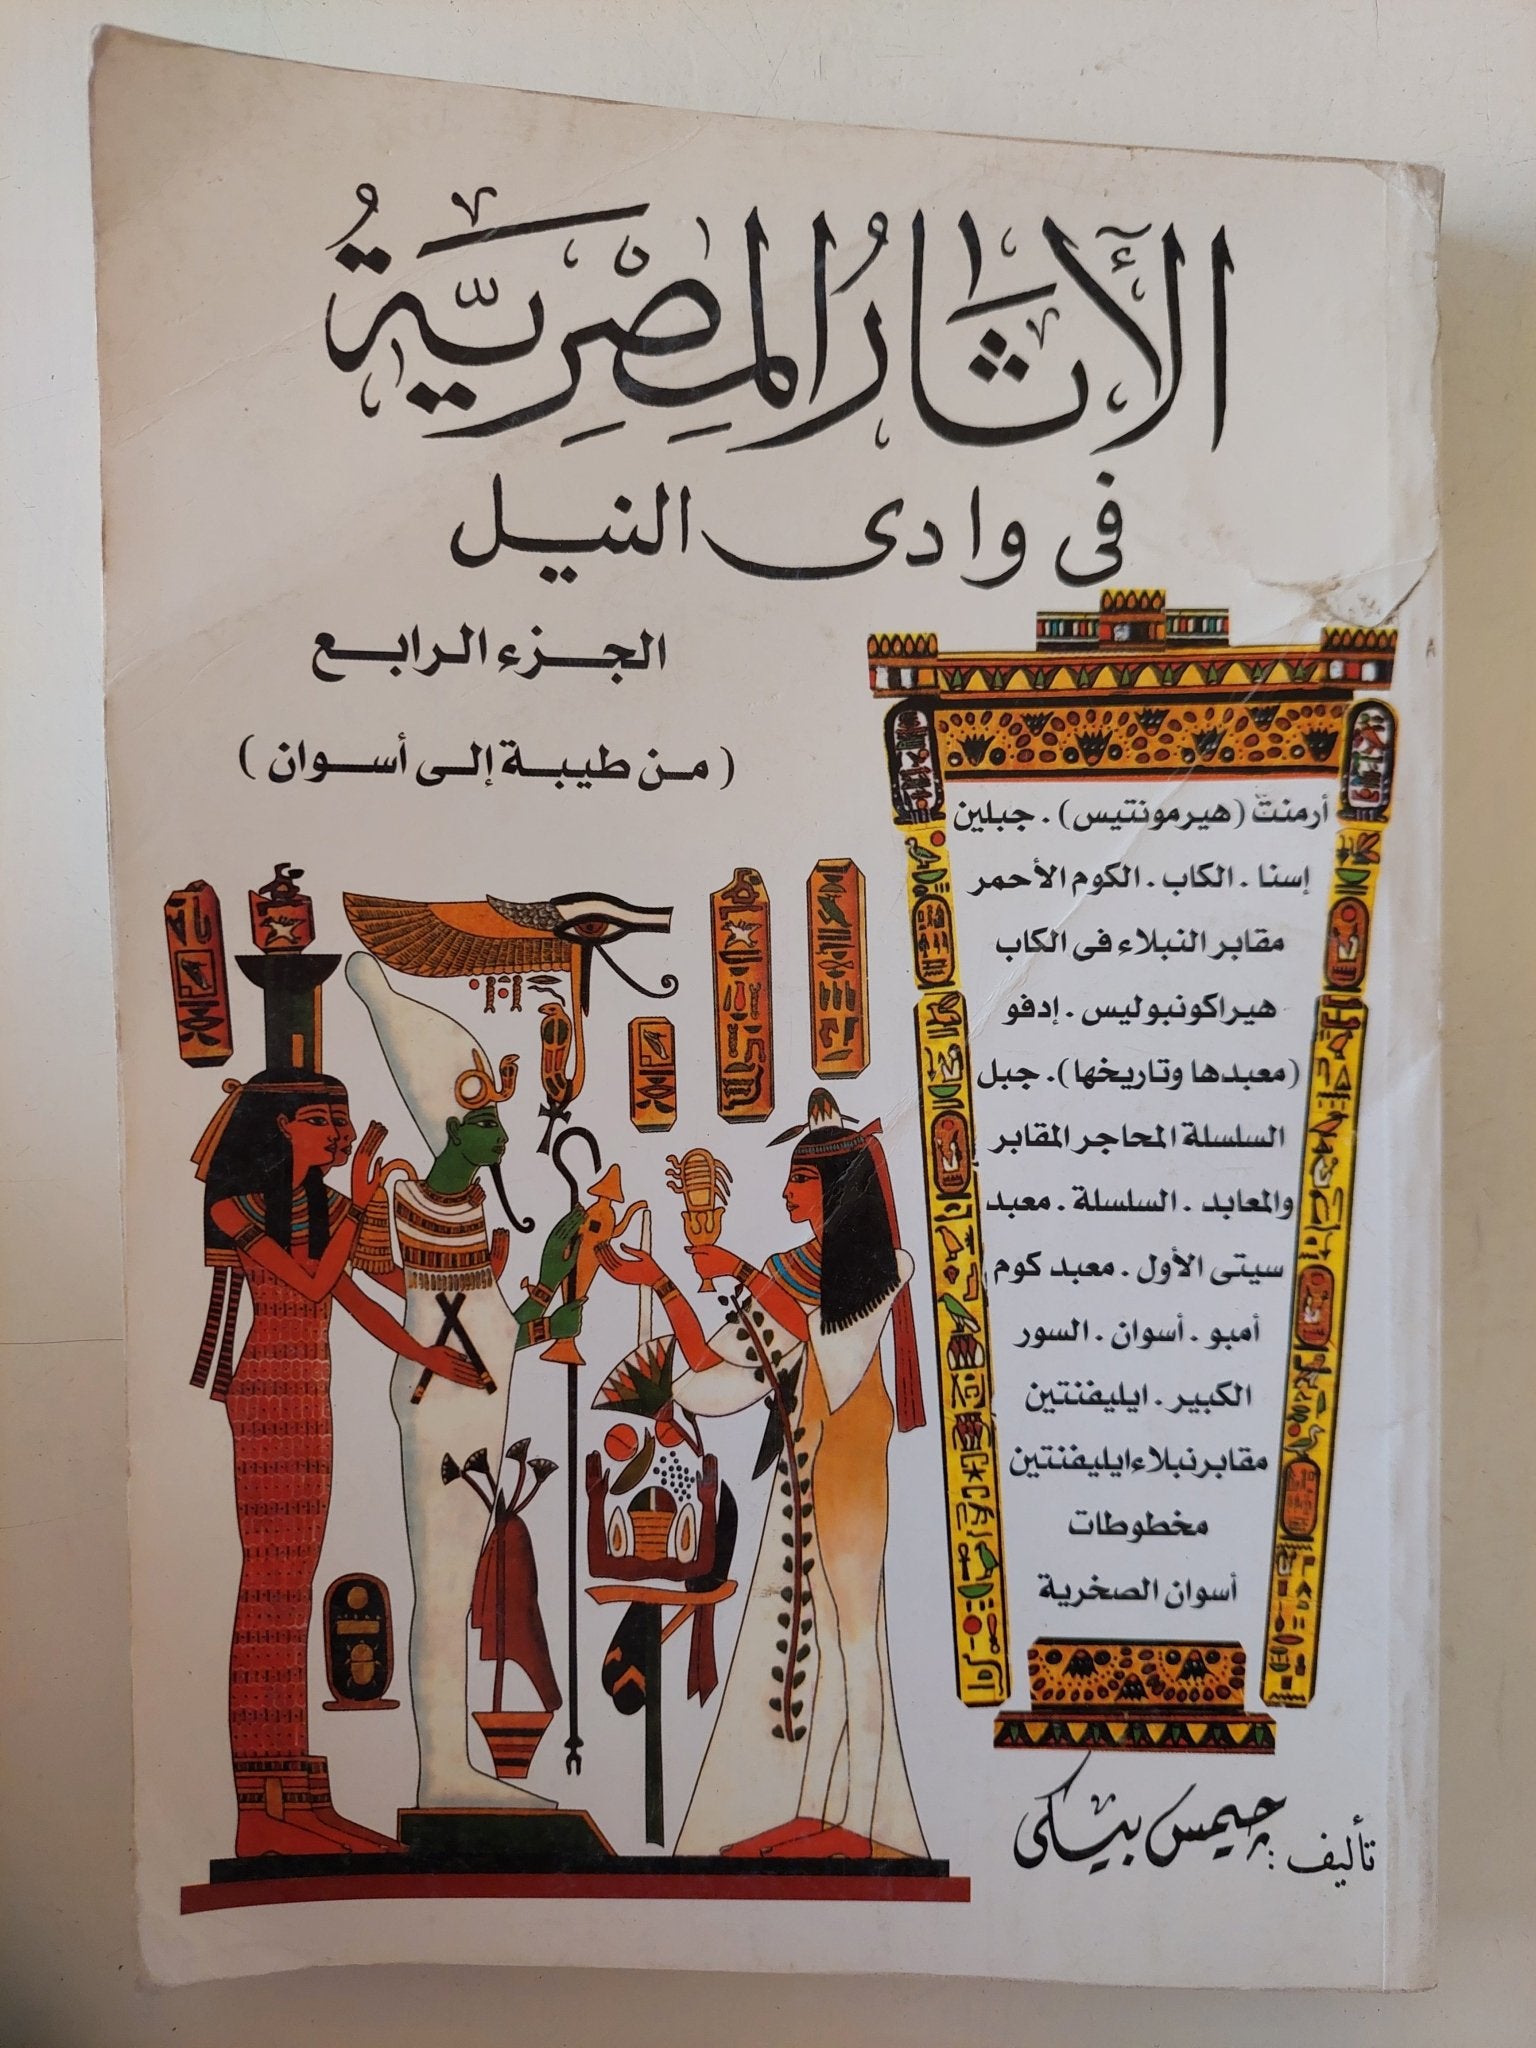 الآثَارُ المِصْرِيَّةُ
فى وادى النيل
الجزء الرابع
(من طيبة إلى أسوان)
أرمنت (هيرمونتيس). جبلين
إسنا. الكاب. الكوم الأحمر
مقابر النبلاء فى الكاب
هيراكونبوليس. إدفو
(معبدها وتاريخها). جبل
السلسلة المحاجر المقابر
والمعابد. السلسلة. معبد
سيتى الأول. معبد كوم
أمبو. أسوان. السور
الكبير. ايليفنتين
مقابر نبلاء ايليفنتين
مخطوطات
أسوان الصخرية
تأليف: جيمس بيكى